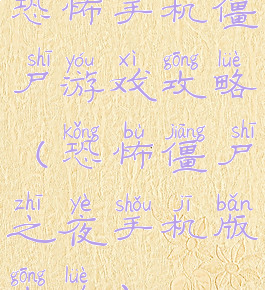 恐怖手机僵
shī yóu xì gōng lüè
尸游戏攻略
kǒng bù jiāng shī
(恐怖僵尸
zhī yè shǒu jī bǎn
之夜手机版
gōng lüè